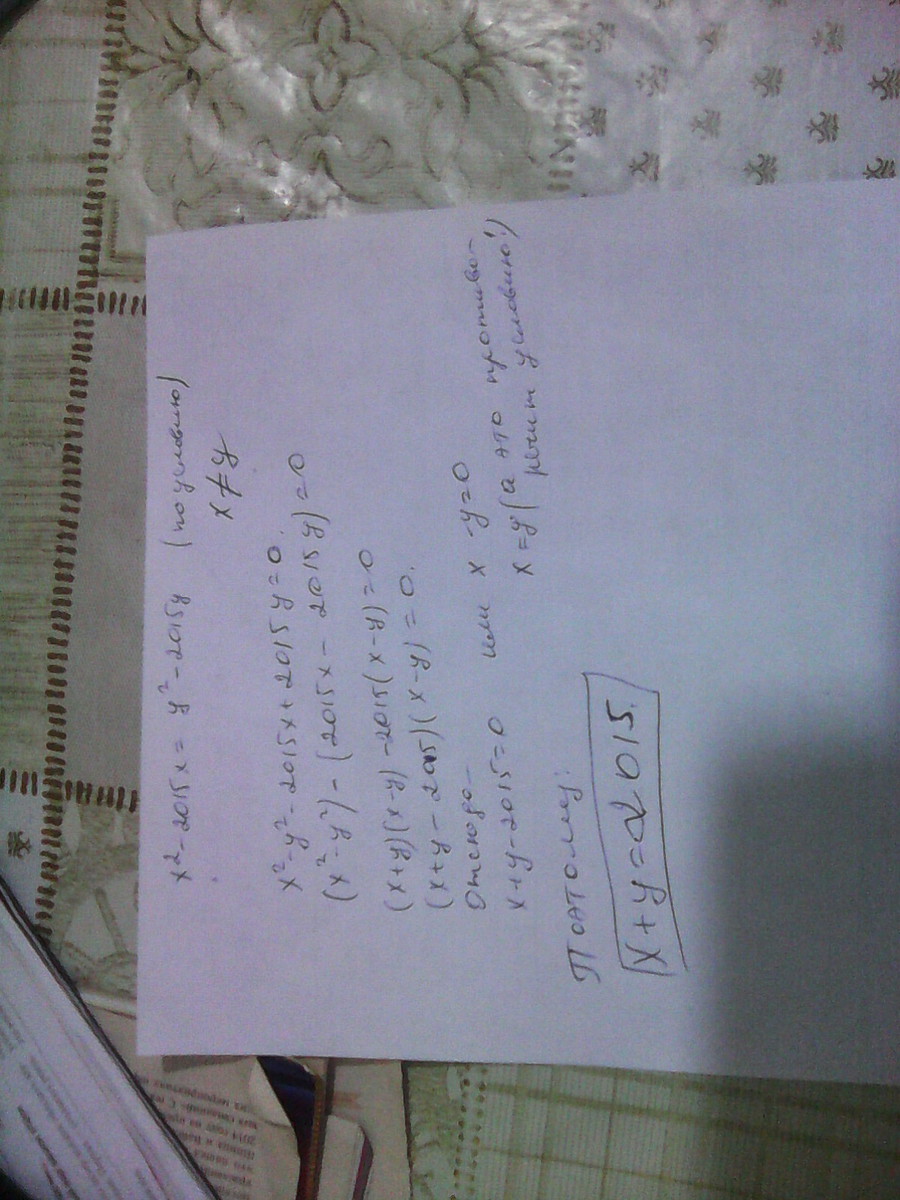 x² - 2015x = y² - 2015y (по условию)
x ≠ y
x² - y² - 2015x + 2015y = 0.
(x² - y²) - (2015x - 2015y) = 0
(x+y)(x-y) - 2015(x-y) = 0
(x+y - 2015)(x-y) = 0.
Отсюдо-
x+y-2015=0 или x-y=0
x=y (а это противо-
речит условию!)
Поэтому:
x+y=2015.